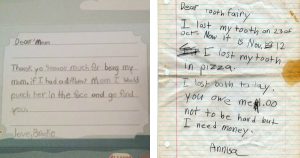 Dear Mom
Thank yo so much for being my
mom, if I had a difrent Mom I would
punch her in the face and go find
you.
love, Brooke
Dear Tooth fairy
I lost my tooth on 23 of
Oct. Now it 8 Nov. 12
I lost my tooth
in pizza.
I lost both to lay.
you owe me .00
not to be hard but
I need money.
Annisa